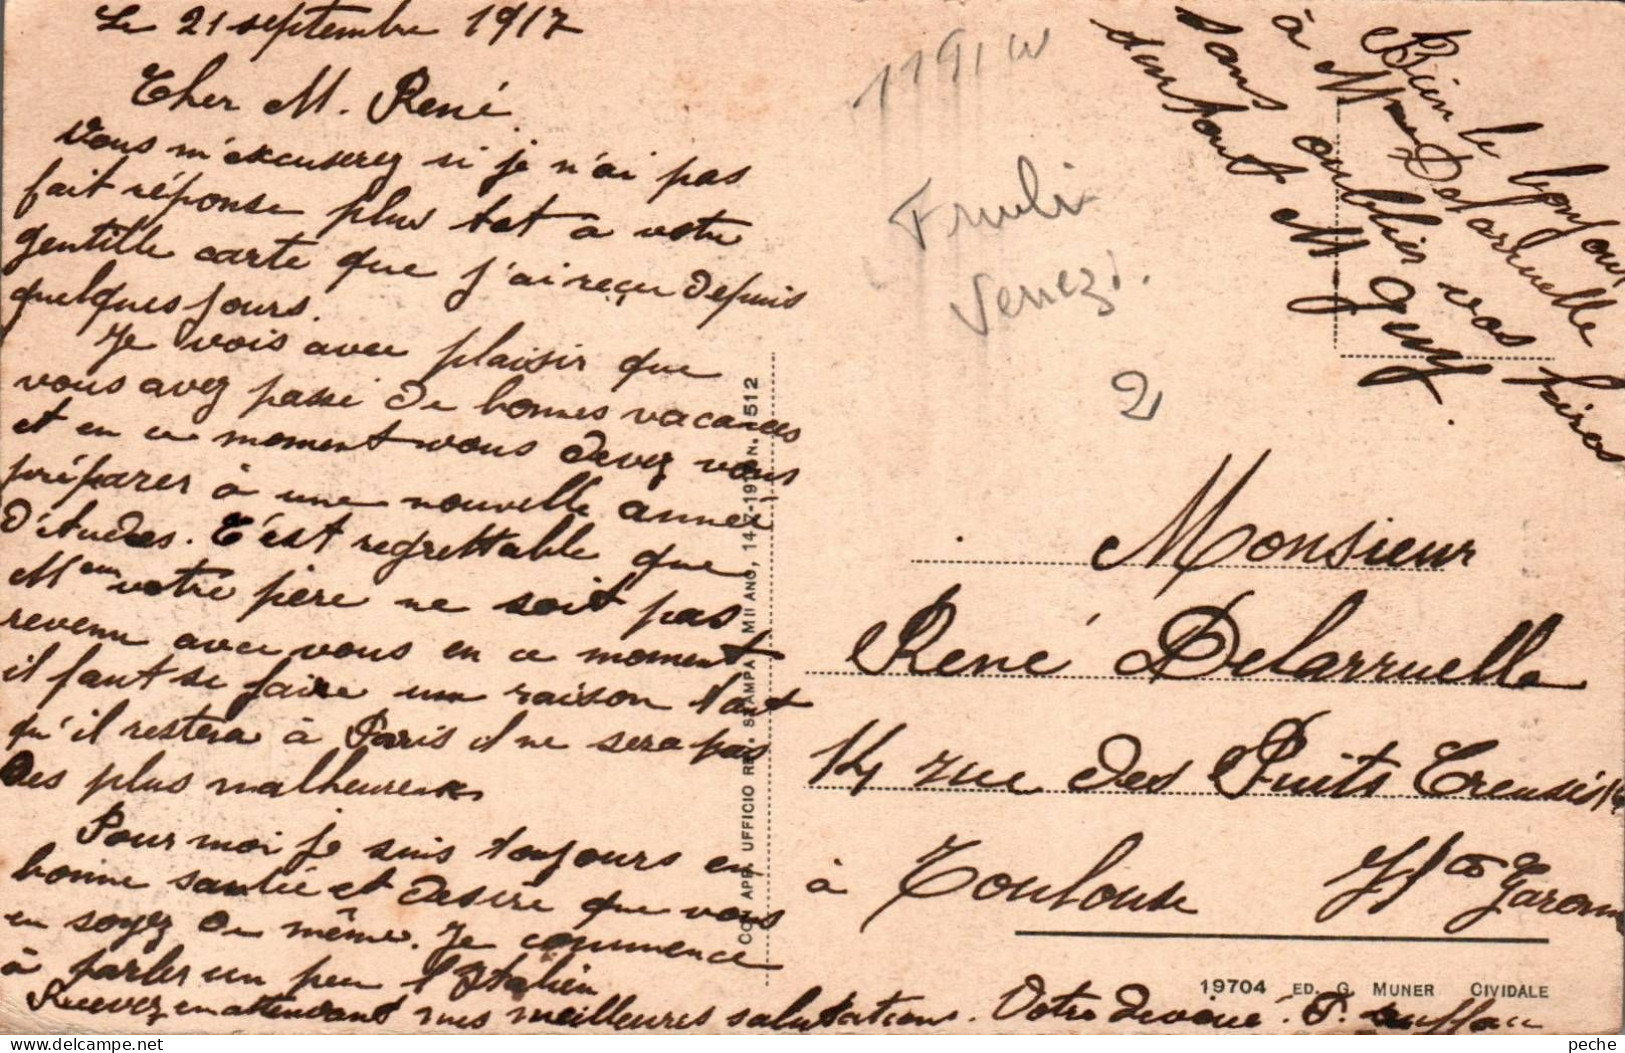 Le 21 septembre 1917
Cher M. René
Vous m'excuserez si je n'ai pas
fait réponse plus tot à votre
gentille carte que j'ai reçu depuis
quelques jours.
Je vois avec plaisir que
vous avez passé de bonnes vacances
et en ce moment vous devez vous
préparer à une nouvelle année
d'études. C'est regrettable que
M eur votre père ne soit pas
revenu avec vous en ce moment
il faut se faire une raison tant
qu'il restera à Paris il ne sera pas
des plus malheureux
Pour moi je suis toujours en
bonne santée et désire que vous
en soyez de même. Je commence
à parler un peu l'Italien
Recevez en attendant mes meilleures salutations. Votre dévoué. P.
Bien le bonjour
à Mme Delarruelle
sans oublier vos frères
surtout M Guy.
1191 W
Friuli
Venezi.
2
Monsieur
René Delarruelle
14 rue des Puits Creusés 14
à Toulouse Hte Garonne
CON APP. UFFICIO REV. STAMPA MILANO, 14-7-191 N. 512
19704 ED. G. MUNER CIVIDALE
peche